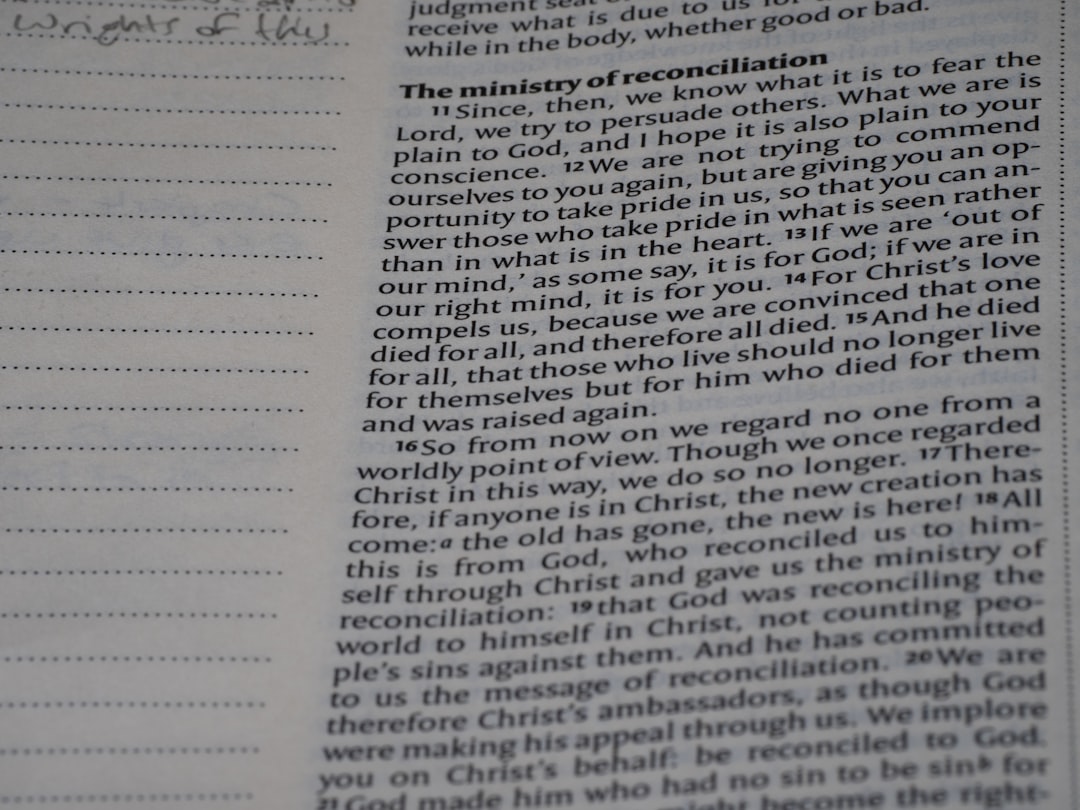 wrights of this
judgment seat
receive what is due to us for
while in the body, whether good or bad.
The ministry of reconciliation
11 Since, then, we know what it is to fear the
Lord, we try to persuade others. What we are is
plain to God, and I hope it is also plain to your
conscience. 12 We are not trying to commend
ourselves to you again, but are giving you an op-
portunity to take pride in us, so that you can an-
swer those who take pride in what is seen rather
than in what is in the heart. 13 If we are ‘out of
our mind,’ as some say, it is for God; if we are in
our right mind, it is for you. 14 For Christ’s love
compels us, because we are convinced that one
died for all, and therefore all died. 15 And he died
for all, that those who live should no longer live
for themselves but for him who died for them
and was raised again.
16 So from now on we regard no one from a
worldly point of view. Though we once regarded
Christ in this way, we do so no longer. 17 There-
fore, if anyone is in Christ, the new creation has
come:a the old has gone, the new is here! 18 All
this is from God, who reconciled us to him-
self through Christ and gave us the ministry of
reconciliation: 19 that God was reconciling the
world to himself in Christ, not counting peo-
ple’s sins against them. And he has committed
to us the message of reconciliation. 20 We are
therefore Christ’s ambassadors, as though God
were making his appeal through us. We implore
you on Christ’s behalf: be reconciled to God.
21 God made him who had no sin to be sinb for
might become the right-